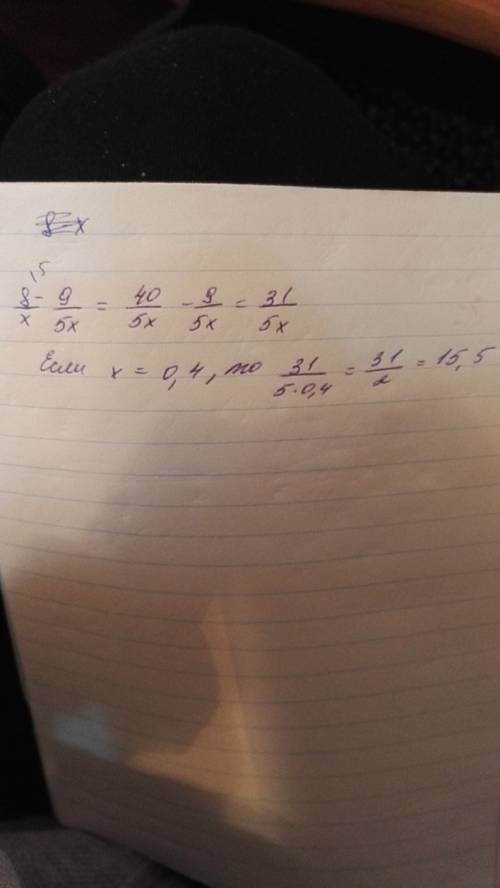 ,5
8/x - 9/5x = 40/5x - 9/5x = 31/5x
Если x = 0,4, то 31/5·0,4 = 31/2 = 15,5